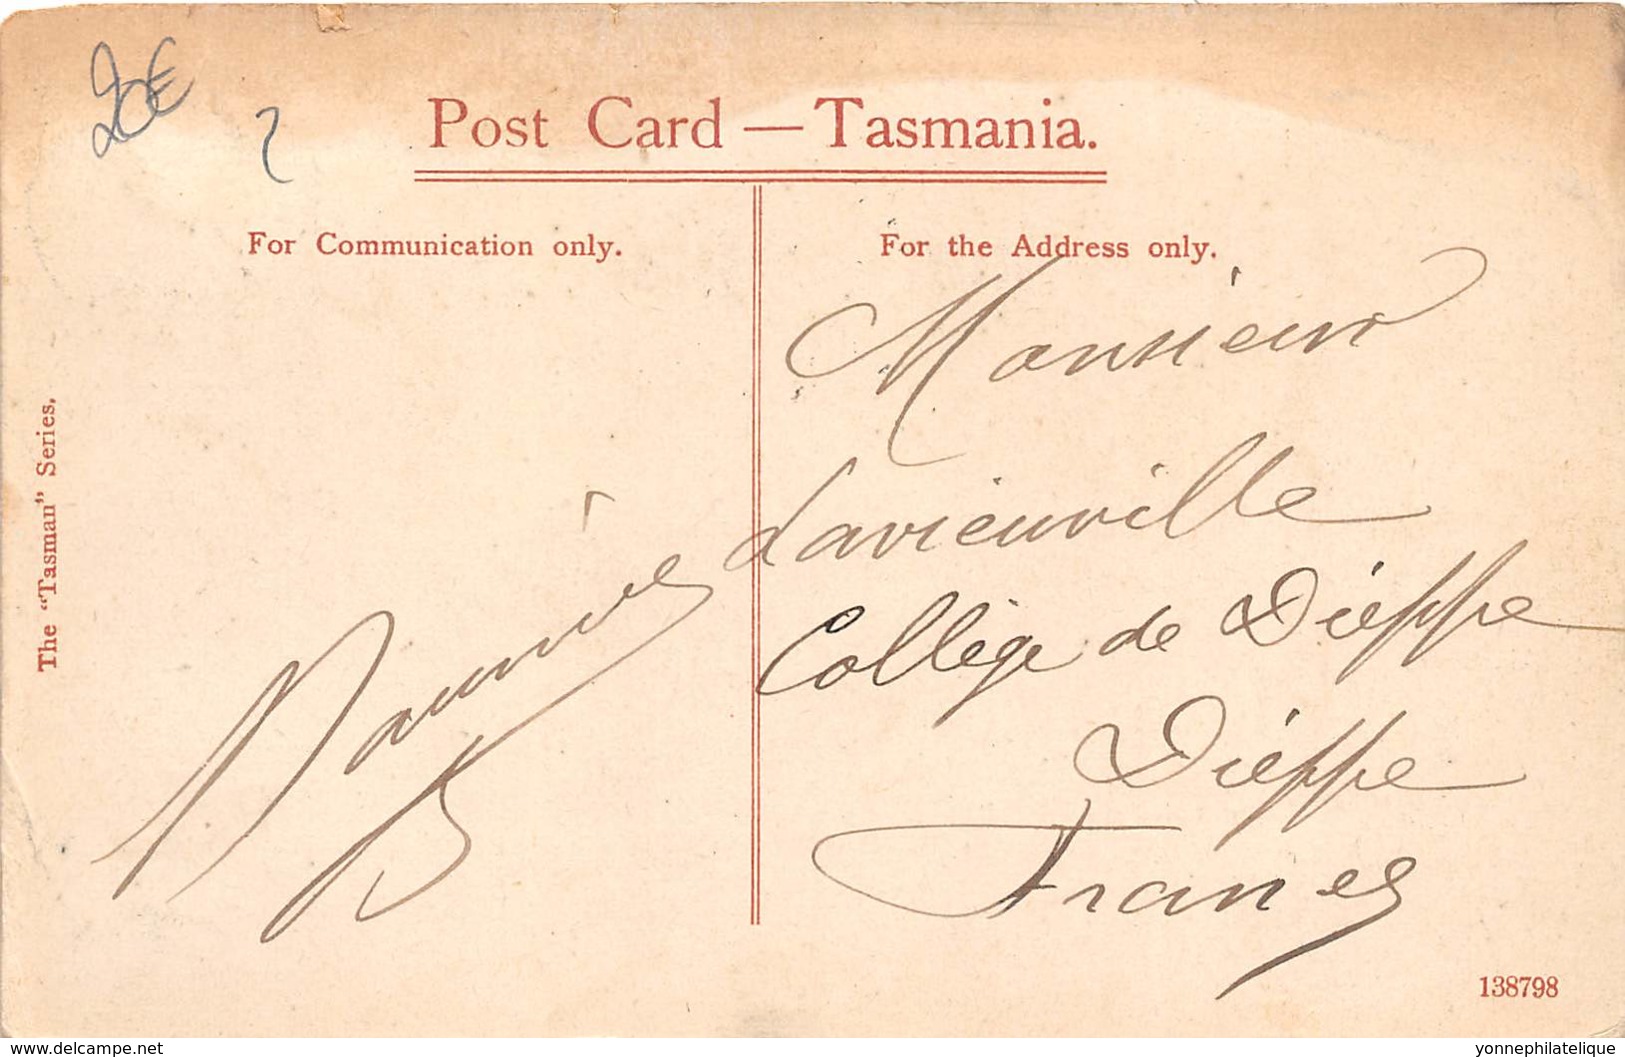 20€
2
Post Card — Tasmania.
For Communication only.
For the Address only.
The "Tasman" Series.
Monsieur
Lavieuville
Collège de Dieppe
Dieppe
France
138798
delcampe.net
yonnephilatelique